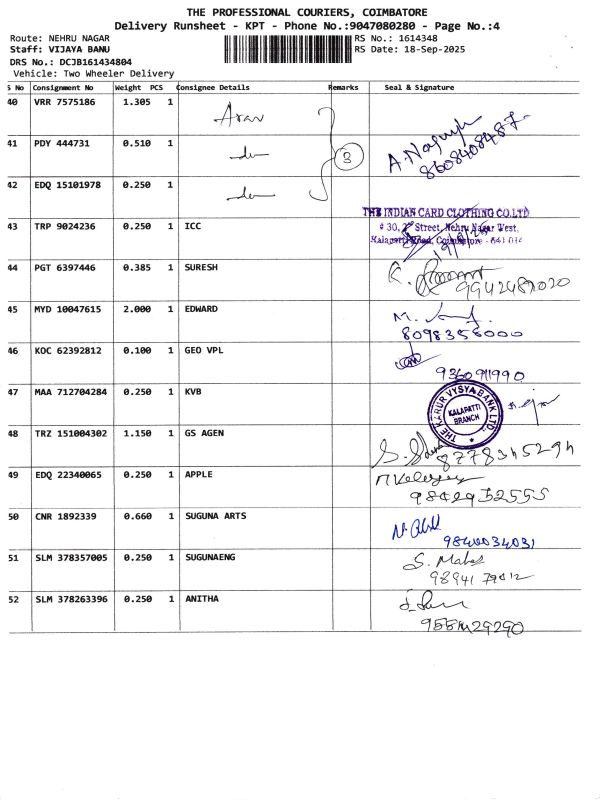 THE PROFESSIONAL COURIERS, COIMBATORE
Delivery Runsheet - KPT - Phone No.:9047080280 - Page No.:4
Route: NEHRU NAGAR RS No.: 1614348
Staff: VIJAYA BANU RS Date: 18-Sep-2025
DRS No.: DCJB161434804
Vehicle: Two Wheeler Delivery
S No Consignment No Weight PCS Consignee Details Remarks Seal & Signature
40 VRR 7575186 1.305 1
41 PDY 444731 0.510 1 3 8608408487
42 EDQ 15101978 0.250 1
THE INDIAN CARD CLOTHING CO.LTD
43 TRP 9024236 0.250 1 ICC # 30, Street, Nehru Nagar West,
Kalapatti Road, Coimbatore - 641 014
44 PGT 6397446 0.385 1 SURESH
9942487020
45 MYD 10047615 2.000 1 EDWARD
8098358000
46 KOC 62392812 0.100 1 GEO VPL
47 MAA 712704284 0.250 1 KVB THE KARUR VYSYA BANK LTD.
KALAPATTI
BRANCH
48 TRZ 151004302 1.150 1 GS AGEN
8778345294
49 EDQ 22340065 0.250 1 APPLE
9842952555
50 CNR 1892339 0.660 1 SUGUNA ARTS
9840034031
51 SLM 378357005 0.250 1 SUGUNAENG S.
52 SLM 378263396 0.250 1 ANITHA